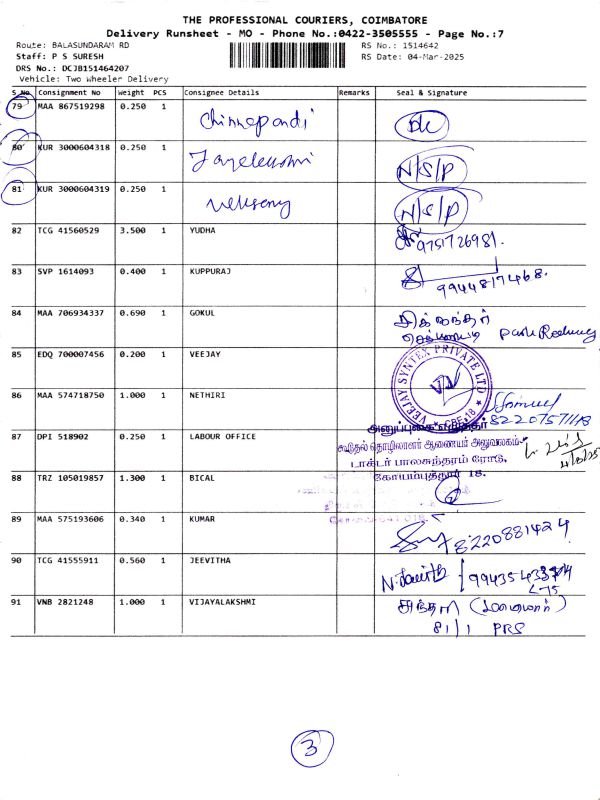 THE PROFESSIONAL COURIERS, COIMBATORE
Delivery Runsheet - MO - Phone No.:0422-3505555 - Page No.:7
Route: BALASUNDARAM RD RS No.: 1514642
Staff: P S SURESH RS Date: 04-Mar-2025
DRS No.: DCJB151464207
Vehicle: Two Wheeler Delivery
S No Consignment No Weight PCS Consignee Details Remarks Seal & Signature
79 MAA 867519298 0.250 1 Chinnapandi DC
80 KUR 3000604318 0.250 1 N/S/P
81 KUR 3000604319 0.250 1 N/S/P
82 TCG 41560529 3.500 1 YUDHA 9751726981.
83 SVP 1614093 0.400 1 KUPPURAJ 9944817468.
84 MAA 706934337 0.690 1 GOKUL
85 EDQ 700007456 0.200 1 VEEJAY
VEEJAY SYNTEX PRIVATE LTD
CBE.18
86 MAA 574718750 1.000 1 NETHIRI Samuel
8220757118
87 DPI 518902 0.250 1 LABOUR OFFICE
கூடுதல் தொழிலாளர் ஆணையர் அலுவலகம்
டாக்டர் பாலசுந்தரம் ரோடு,
கோயம்புத்தூர் 18.
88 TRZ 105019857 1.300 1 BICAL
89 MAA 575193606 0.340 1 KUMAR 8220881424
90 TCG 41555911 0.560 1 JEEVITHA
91 VNB 2821248 1.000 1 VIJAYALAKSHMI
81/1 PRS
3